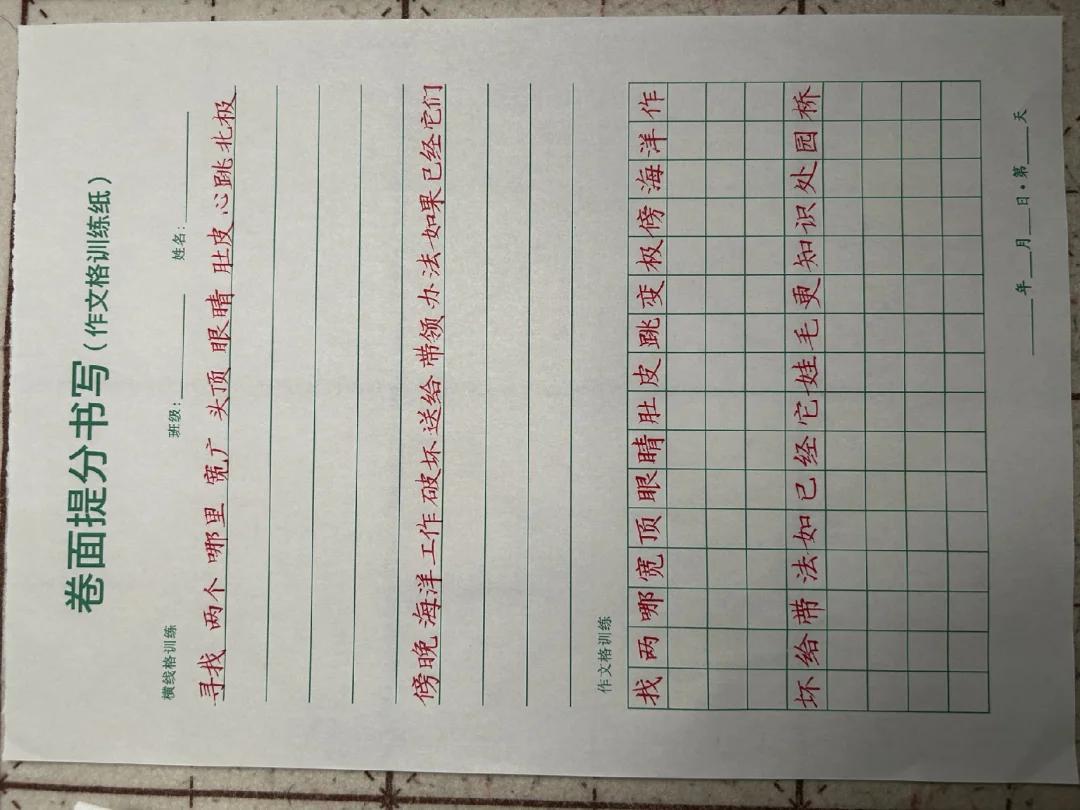 卷面提分书写（作文格训练纸）
班级：　姓名：
横线格训练
寻找 两个 哪里 宽广 头顶 眼睛 肚皮 心跳 北极
傍晚 海洋 工作 破坏 送给 带领 办法 如果 已经 它们
作文格训练
找两哪宽顶眼睛肚皮跳变极傍海洋作
坏给带法如已经它娃毛更知识处园桥
年 月 日·第 天